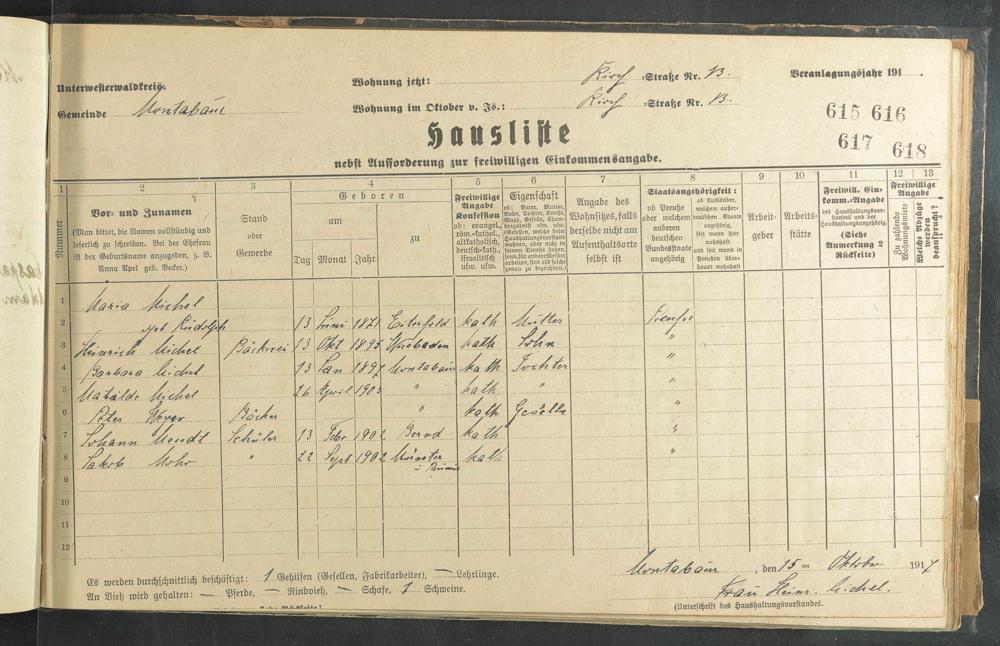 Unterwesterwaldkreis.
Gemeinde Montabaur
Wohnung jetzt: Kirch =Straße Nr. 13.
Wohnung im Oktober v. Js.: Kirch =Straße Nr. 13.
Veranlagungsjahr 191 .
615 616
617 618
Hausliste
nebst Aufforderung zur freiwilligen Einkommensangabe.
1 2 3 4 5 6 7 8 9 10 11 12 13
Nummer
Vor- und Zunamen
(Man bittet, die Namen vollständig und
leserlich zu schreiben. Bei der Ehefrau
ist der Geburtsname anzugeben, z. B.
Anna Apel geb. Becker.)
Stand
oder
Gewerbe
Geboren
am
zu
Tag Monat Jahr
Freiwillige
Angabe
Konfession
ob: evangel.,
röm.-kathol.,
altkatholisch,
deutsch-kath.,
israelitisch
usw. usw.
Eigenschaft
ob: Vater, Mutter,
Sohn, Tochter, Knecht,
Magd, Geselle,
usw. usw.
Angabe des
Wohnsitzes, falls
derselbe nicht am
Aufenthaltsorte
selbst ist
Staatsangehörigkeit:
ob Preuße
oder welchem
anderen
deutschen
Bundesstaate
angehörig
ob Ausländer,
welchem außer-
deutschen Staate
angehörig,
seit wann hier
wohnhaft
und seit wann in
Preußen über-
haupt wohnhaft
Arbeit-
geber
Arbeits-
stätte
Freiwill. Ein-
komm.-Angabe
des Haushaltungsvor-
standes und der
Haushaltungsangehörig.
(Siehe
Anmerkung 2
Rückseite)
Freiwillige
Angabe
Zu zahlende
Wohnungsmiete
Welche Abzüge
werden
beansprucht?
1 Maria Michel
2 geb Rudolph 13 Juni 1871 Eiterfeld kath Mutter Preuße
3 Heinrich Michel Bäckerei 13 Okt 1895 Wiesbaden kath Sohn "
4 Barbara Michel 13 Jan 1897 Montabaur kath Tochter "
5 Matilde Michel 26 April 1905 " kath " "
6 Peter Meyer Bäcker " kath Geselle "
7 Johann Mendt Schüler 13 Febr 1902 Bernd kath "
8 Jakob Mohr " 22 Sept 1902 Münster kath "
9
10
11
12
Es werden durchschnittlich beschäftigt: 1 Gehilfen (Gesellen, Fabrikarbeiter), — Lehrlinge.
An Vieh wird gehalten: — Pferde, — Rindvieh, — Schafe, 1 Schweine.
Montabaur, den 15ten Oktober 1917
Frau Heinr. Michel.
(Unterschrift des Haushaltungsvorstandes.